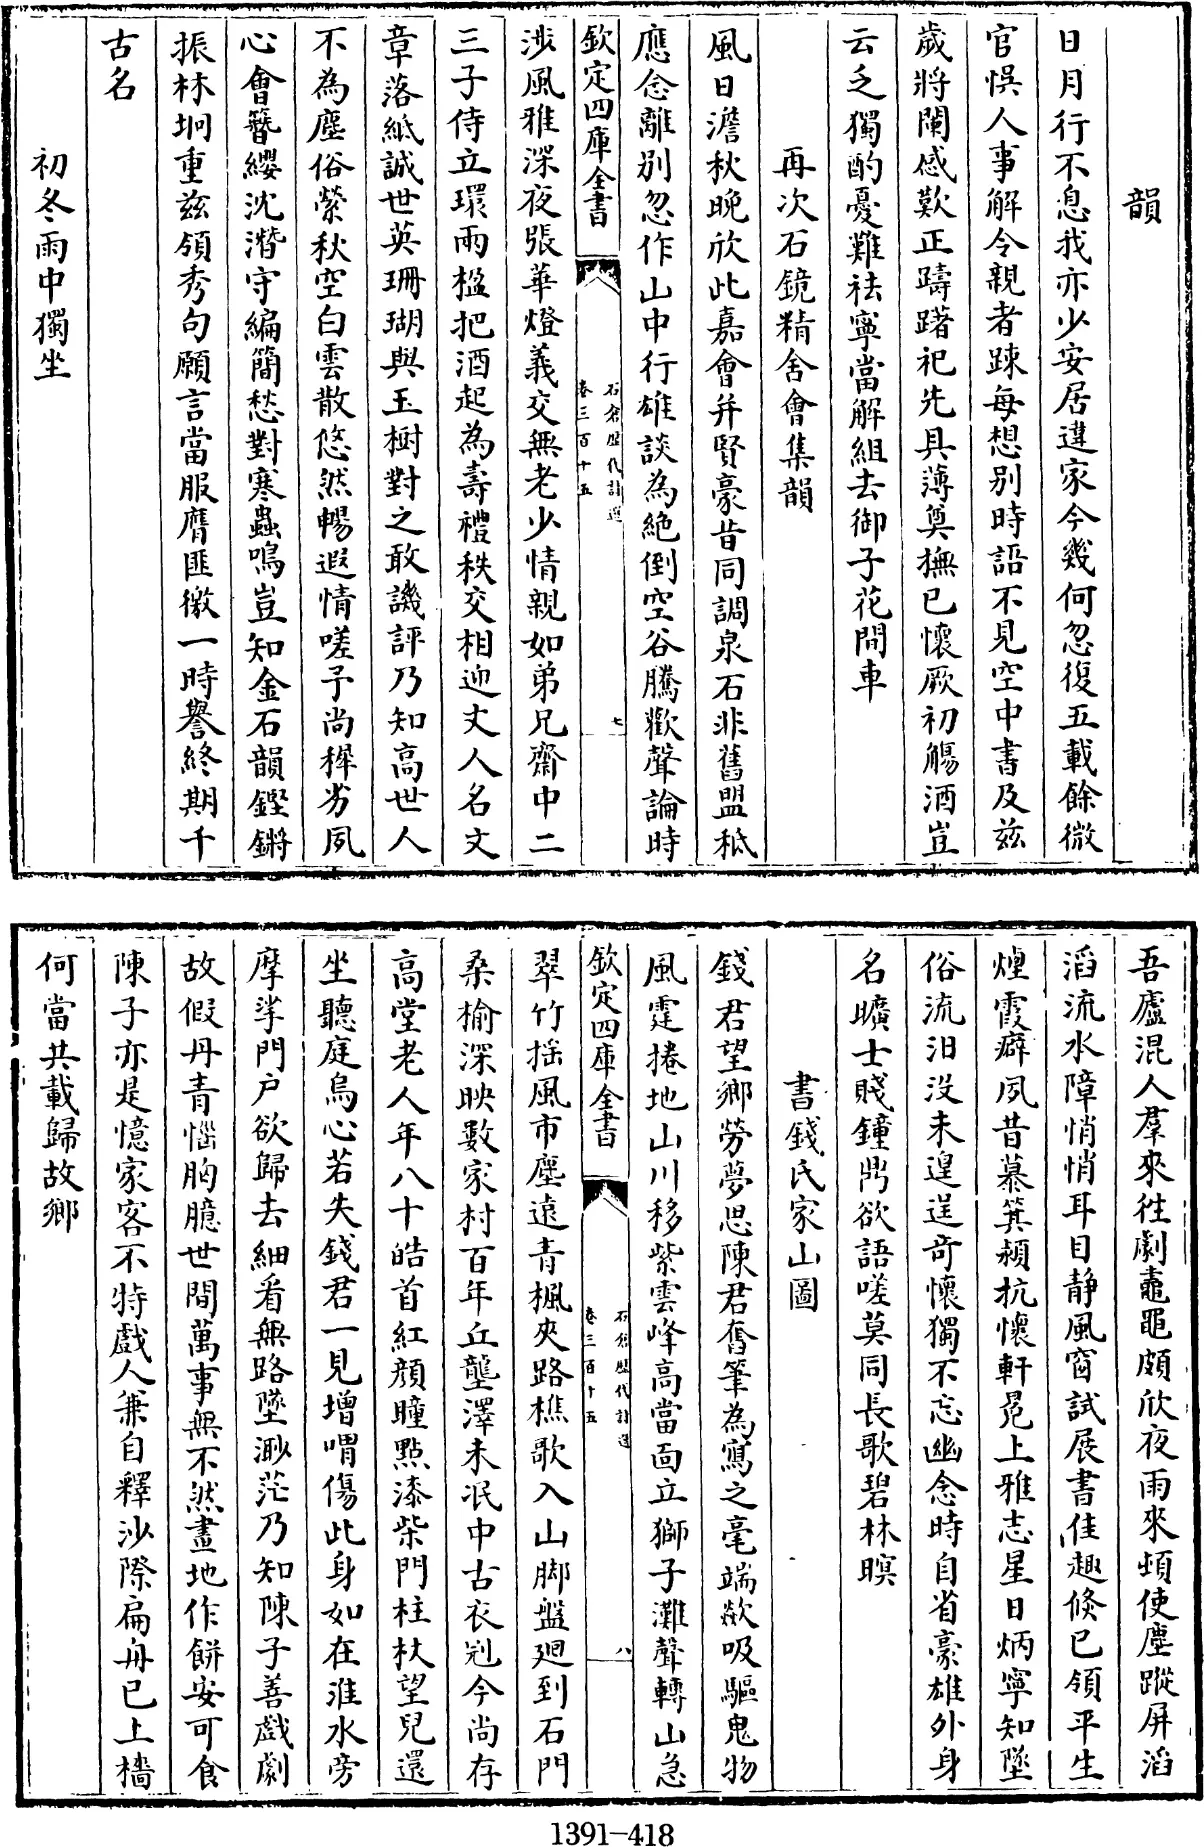 韻
日月行不息我亦少安居違家今幾何忽復五載餘微
官悞人事解令親者踈每想别時語不見空中書及兹
歲將闌感歎正躊躇祀先具薄奠撫已懷厥初觴酒豈
云乏獨酌憂難祛寧當解組去御子花間車
再次石鏡精舍會集韻
風日澹秋晚欣此嘉會并賢豪昔同調泉石非舊盟秪
應念離别忽作山中行雄談為絶倒空谷騰歡聲論時
欽定四庫全書
石倉歴代詩選
卷三百十五
七
渉風雅深夜張華燈義交無老少情親如弟兄齋中二
三子侍立環兩楹把酒起為壽禮秩交相迎丈人名文
章落紙誠世英珊瑚與玉樹對之敢譏評乃知高世人
不為塵俗縈秋空白雲散悠然暢遐情嗟予尚樨劣夙
心會簪纓沈潛守編簡愁對寒蟲鳴豈知金石韻鏗鏘
振林坰重兹領秀句願言當服膺匪徼一時譽終期千
古名
初冬雨中獨坐
吾廬混人羣來往劇鼃黽頗欣夜雨來頓使塵蹤屏滔
滔流水障悄悄耳目静風窗試展書佳趣倐已領平生
煙霞癖夙昔慕箕潁抗懷軒冕上雅志星日炳寧知墜
俗流汨没未遑逞奇懷獨不忘幽念時自省豪雄外身
名曠士賤鐘鼎欲語嗟莫同長歌碧林暝
書錢氏家山圖
錢君望鄉勞夢思陳君奮筆為寫之毫端歘吸驅鬼物
風霆捲地山川移紫雲峰高當面立獅子灘聲轉山急
欽定四庫全書
石倉歴代詩選
卷三百十五
八
翠竹揺風市塵遠青楓夾路樵歌入山脚盤廻到石門
桑榆深映數家村百年丘壟澤未泯中古衣冠今尚存
高堂老人年八十皓首紅顔瞳點漆柴門柱杖望兒還
坐聽庭烏心若失錢君一見增喟傷此身如在淮水旁
摩挲門户欲歸去細看無路墜渺茫乃知陳子善戲劇
故假丹青惱胸臆世間萬事無不然畫地作餅安可食
陳子亦是憶家客不特戲人兼自釋沙際扁舟已上檣
何當共載歸故鄉
1391-418